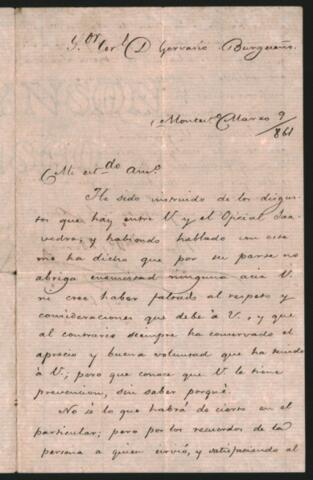 S.or Cor.l D Gervasio Burgueño.
Montev.o Marzo 9/861
Mi est.do am.o
He sido instruido de los disgus-
tos que hay entre V. y el Oficial Saa-
vedra, y habiendo hablado con este
me ha dicho que por su parte no
abriga enemistad ninguna acia V.
ni cree haber faltado al respeto y
consideraciones que debe à V., y que
al contrario siempre ha conservado el
aprecio y buena voluntad que ha tenido
à V.; pero que conoce que V. le tiene
prevencion, sin saber porqué.
No sé lo que habrá de cierto en el
particular; pero por los recuerdos de la
persona a quien sirvió, y satisfaciendo al